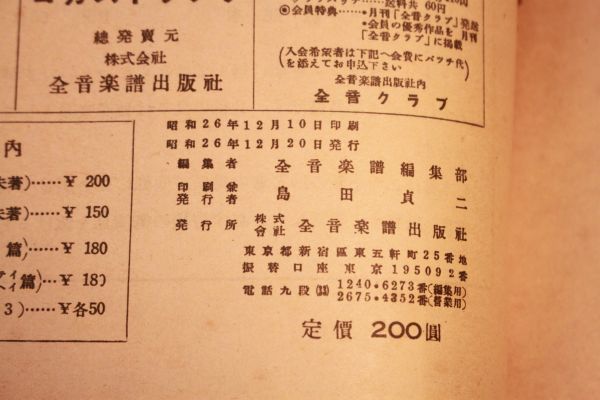 總発賣元
株式会社
全音楽譜出版社
送料共 60円
◉会員特典……●月刊「全音クラブ」発送
●会員の優秀作品を月刊
「全音クラブ」に掲載
(入会希望者は下記へ会費にバッチ代
を添えてお申込下さい)
全音楽譜出版社内
全音クラブ
内
著)……¥ 200
著)……¥ 150
篇)……¥ 180
篇)……¥ 18
3)……¥各50
昭和26年12月10日印刷
昭和26年12月20日発行
編集者 全音楽譜編集部
印刷兼
発行者 島田貞二
発行所 株式會社 全音楽譜出版社
東京都新宿區東五軒町25番地
振替口座東京195092番
電話九段(33) 1240•6273番(編集用)
2675•4352番(営業用)
定價 200圓